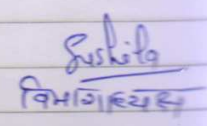 Sushila
विभागाध्यक्ष